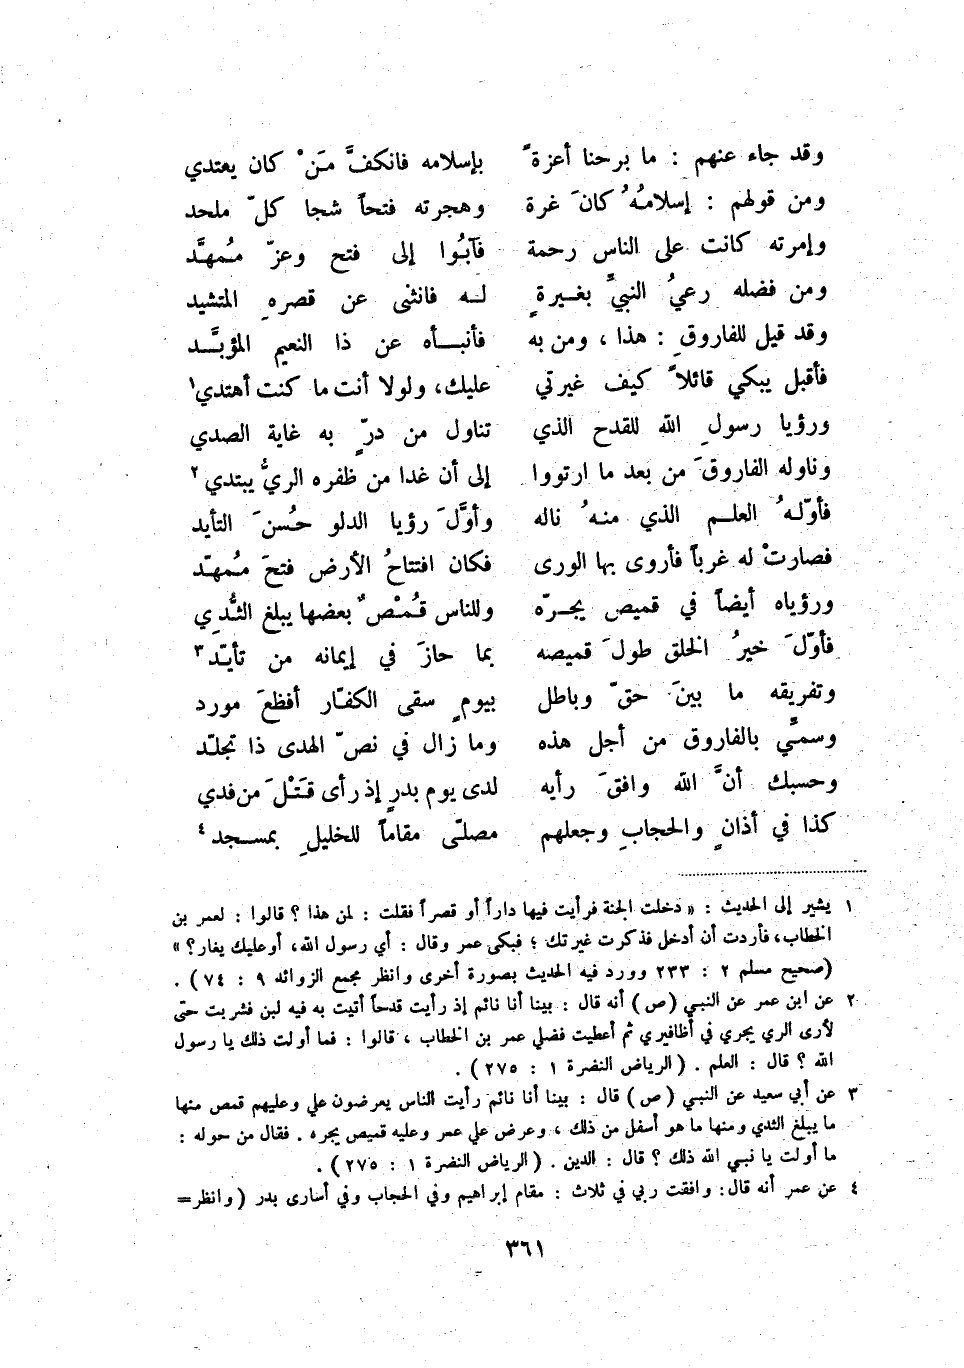 وقد جاء عنهم : ما برحنا أعزةً بإسلامه فانكفَّ مَنْ كان يعتدي
ومن قولهم : إسلامُهُ كانَ غرة وهجرته فتحاً شجا كلّ ملحد
وإمرته كانت على الناس رحمة فآبُوا إلى فتح وعزّ مُمهَّد
ومن فضله رعيُ النبيِّ بغيرةٍ له فانثنى عن قصرهِ المتشيد
وقد قيل للفاروقِ : هذا ، ومن به فأنبأه عن ذا النعيم المؤبَّد
فأقبل يبكي قائلاً كيف غيرتي عليك، ولولا أنت ما كنت أهتدي١
ورؤيا رسولِ الله للقدح الذي تناول من درّ به غاية الصدي
وناوله الفاروقَ من بعد ما ارتووا إلى أن غدا من ظفره الريُّ يبتدي٢
فأوّلهُ العلم الذي منهُ ناله وأوَّلَ رؤيا الدلو حُسنَ التأيد
فصارتْ له غرباً فأروى بها الورى فكان افتتاحُ الأرض فتحَ مُمهّد
ورؤياه أيضاً في قميص يجرّه وللناس قُمْصٌ بعضها يبلغ الثُّدِي
فأوّلَ خيرُ الخلق طولَ قميصه بما حازَ في إيمانه من تأيّد٣
وتفريقه ما بينَ حقّ وباطل بيومٍ سقى الكفّار أفظعَ مورد
وسمِّي بالفاروق من أجل هذه وما زال في نصّ الهدى ذا تجلّد
وحسبك أنَّ الله وافقَ رأيه لدى يوم بدرٍ إذ رأى قَتْلَ من فدي
كذا في أذانٍ والحجابِ وجعلهم مصلّى مقاماً للخليلِ بمسجد٤
١ يشير إلى الحديث : « دخلت الجنة فرأيت فيها داراً أو قصراً فقلت : لمن هذا ؟ قالوا : لعمر بن
الخطاب، فأردت أن أدخل فذكرت غيرتك ؛ فبكى عمر وقال : أي رسول الله، أو عليك يغار؟ »
(صحيح مسلم ٢ : ٢٣٣ وورد فيه الحديث بصورة أخرى وانظر مجمع الزوائد ٩ : ٧٤) .
٢ عن ابن عمر عن النبي (ص) أنه قال : بينا أنا نائم إذ رأيت قدحاً أتيت به فيه لبن فشربت حتى
لأرى الري يجري في أظافيري ثم أعطيت فضلي عمر بن الخطاب ، قالوا : فما أولت ذلك يا رسول
الله ؟ قال : العلم . (الرياض النضرة ١ : ٢٧٥) .
٣ عن أبي سعيد عن النبي (ص) قال : بينا أنا نائم رأيت الناس يعرضون علي وعليهم قمص منها
ما يبلغ الثدي ومنها ما هو أسفل من ذلك ، وعرض علي عمر وعليه قميص يجره . فقال من حوله :
ما أولت يا نبي الله ذلك ؟ قال : الدين . (الرياض النضرة ١ : ٢٧٥) .
٤ عن عمر أنه قال: وافقت ربي في ثلاث : مقام إبراهيم وفي الحجاب وفي أسارى بدر (وانظر=
٣٦١